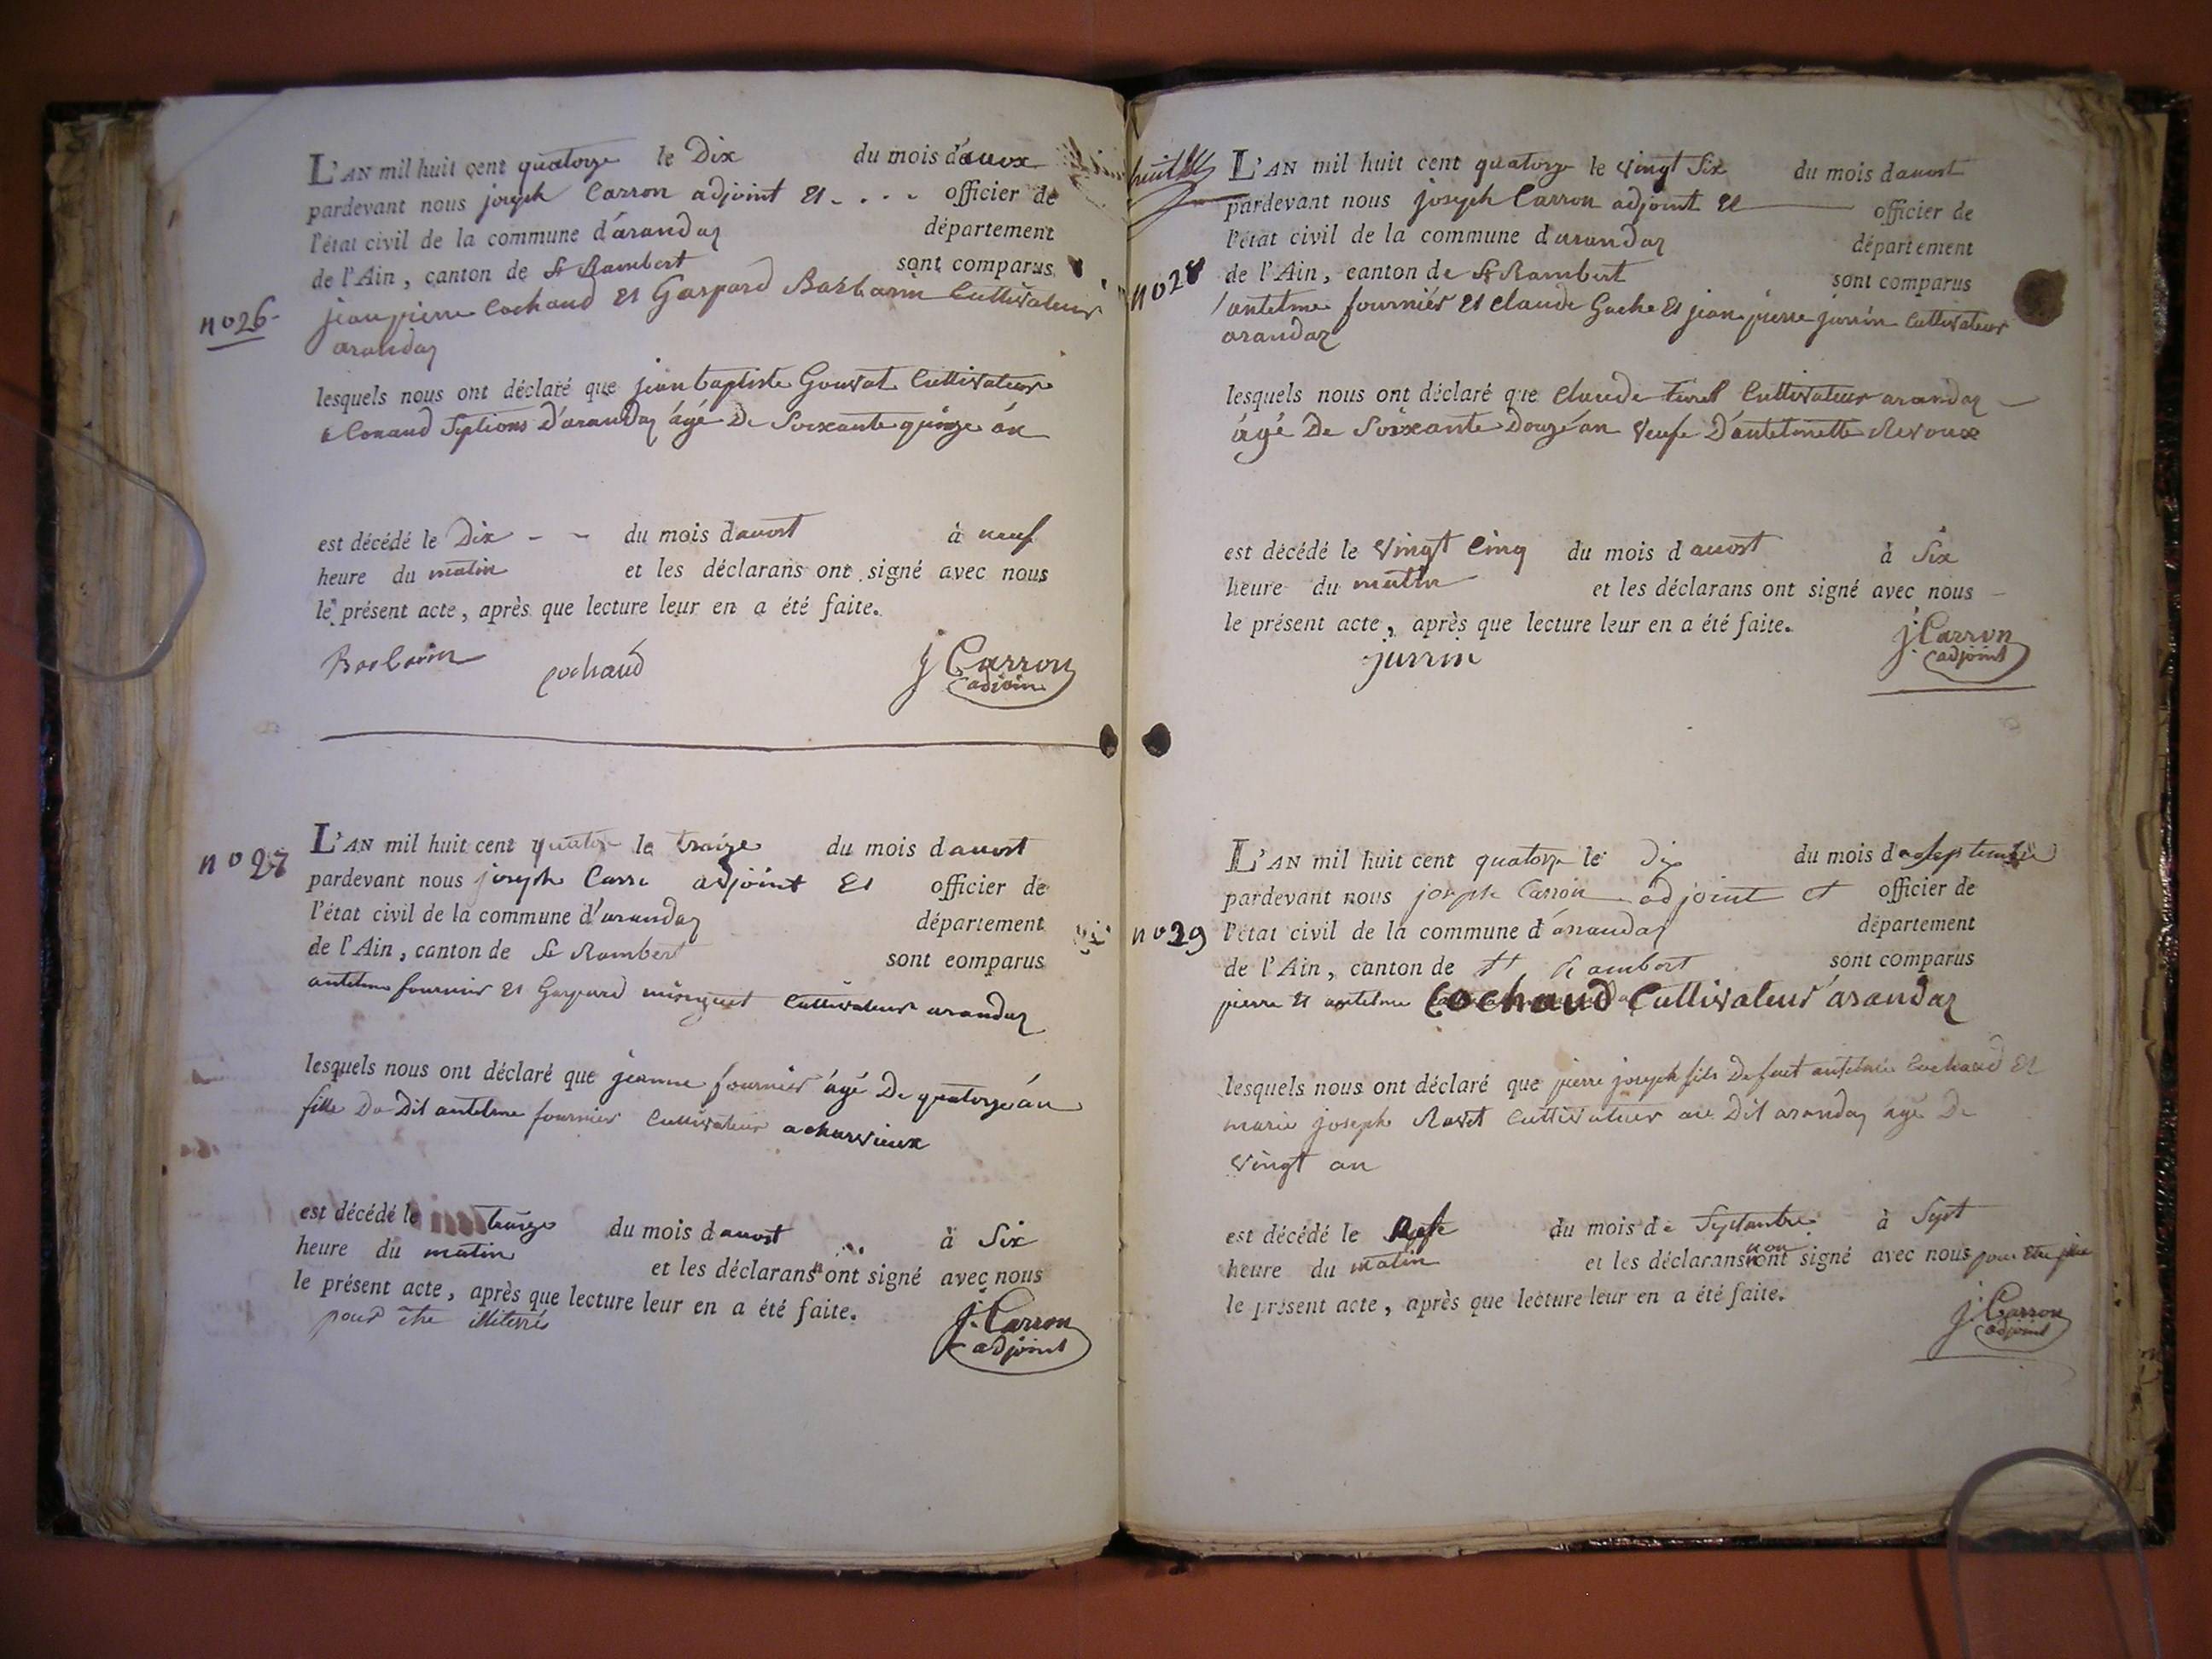 L'AN mil huit cent quatorze le Dix du mois d'auox
pardevant nous joseph Carron adjoint Et - . . - officier de
l'état civil de la commune d'arandaz département
de l'Ain, canton de St Rambert sont comparus
no 26 jean pierre Cochaud Et Gaspard Barbarin Cultivateur
arandaz
lesquels nous ont déclaré que jean baptiste Gouvat Cultivateur
a Conand d'arandaz âgé De Soixante quinze án
est décédé le Dix - - du mois d auost à neuf
heure du matin et les déclarans ont signé avec nous
le présent acte, après que lecture leur en a été faite.
Barbarin cochaud j Carron
adjoin
no 27 L'AN mil huit cent quatorz le traize du mois d auost
pardevant nous joseph Carre adjoint Et officier de
l'état civil de la commune d'arandaz département
de l'Ain, canton de St Rambert sont comparus
antelme fournier Et Gaspard minguet Cultivateur arandaz
lesquels nous ont déclaré que jeanne fournier âgé De quatorze án
fille Du Dit antelme fournier Cultivateur a charvieux
est décédé le traize du mois d auost à Six
heure du matin et les déclarans n'ont signé avec nous
le présent acte, après que lecture leur en a été faite.
pour être illiterés j. Carron
adjoint
huit
L'AN mil huit cent quatorze le vingt Six du mois d auost
pardevant nous joseph Carron adjoint Et officier de
l'état civil de la commune d arandaz département
no 28 de l'Ain, canton de St Rambert sont comparus
antelme fournier Et claude Gache Et jean pierre jurrin Cultivateur
arandaz
lesquels nous ont déclaré que Claude turel Cultivateur arandaz
âgé De Soixante Douze án Veufe D'antelmette Revoux
est décédé le vingt Cinq du mois d auost à Six
heure du matin et les déclarans ont signé avec nous
le présent acte, après que lecture leur en a été faite.
jurrin j. Carron
adjoint
L'AN mil huit cent quatorze le dix du mois d septembre
pardevant nous joseph Carron adjoint et officier de
no 29 l'état civil de la commune d'arandaz département
de l'Ain, canton de St Rambert sont comparus
pierre Et antelme Cochaud Cultivateur arandaz
lesquels nous ont déclaré que pierre joseph fils De fut antelme Cochaud Et
marie joseph Ravet Cultivateur au Dit arandaz âgé De
vingt an
est décédé le du mois de Septambre à Sept
heure du matin et les déclarans non ont signé avec nous pour être
le présent acte, après que lecture leur en a été faite.
j. Carron
adjoint